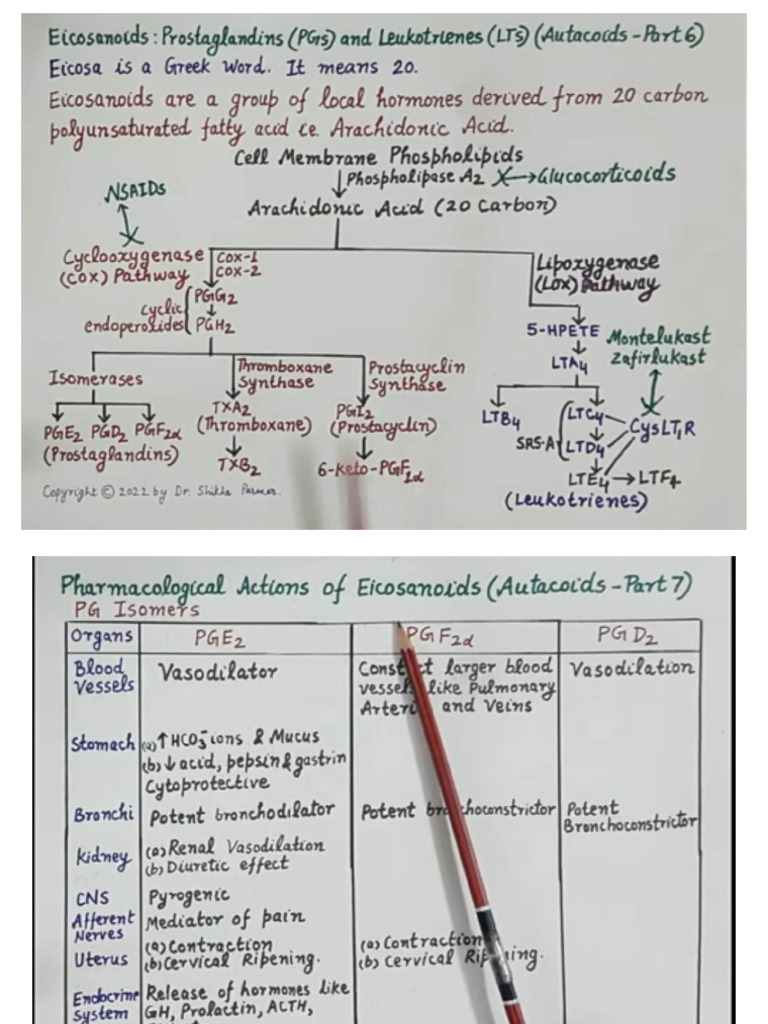 Eicosanoids: Prostaglandins (PGs) and Leukotrienes (LTs) (Autacoids - Part 6)
Eicosa is a Greek Word. It means 20.
Eicosanoids are a group of local hormones derived from 20 carbon
polyunsaturated fatty acid ie. Arachidonic Acid.
Cell Membrane Phospholipids
NSAIDs
Phospholipase A2 X→Glucocorticoids
Arachidonic Acid (20 Carbon)
Cyclooxygenase
(COX) Pathway
COX-1
COX-2
Lipoxygenase
(LOX) Pathway
PGG2
Cyclic
endoperoxides
PGH2
5-HPETE
Montelukast
Zafirlukast
LTA4
Isomerases
Thromboxane
Synthase
Prostacyclin
Synthase
PGE2 PGD2 PGF2α
(Prostaglandins)
TXA2
(Thromboxane)
TXB2
PGI2
(Prostacyclin)
6-keto-PGF1α
LTB4
LTC4
SRS-A
LTD4
CysLT1R
LTE4 → LTF4
(Leukotrienes)
Copyright © 2022 by Dr. Shikha Parmar.
Pharmacological Actions of Eicosanoids (Autacoids - Part 7)
PG Isomers
Organs PGE2 PGF2α PGD2
Blood
Vessels
Vasodilator
larger blood
like Pulmonary
and Veins
Vasodilation
Stomach
(a)↑HCO3⁻ ions & Mucus
(b)↓ acid, pepsin & gastrin
Cytoprotective
Bronchi
Potent bronchodilator
Potent
Potent
Bronchoconstrictor
Kidney
(a) Renal Vasodilation
(b) Diuretic effect
CNS Pyrogenic
Afferent
Nerves
Mediator of pain
Uterus
(a) Contraction
(b) Cervical Ripening.
(a) Contraction
(b) Cervical
Endocrine
System
Release of hormones like
GH, Prolactin, ACTH,